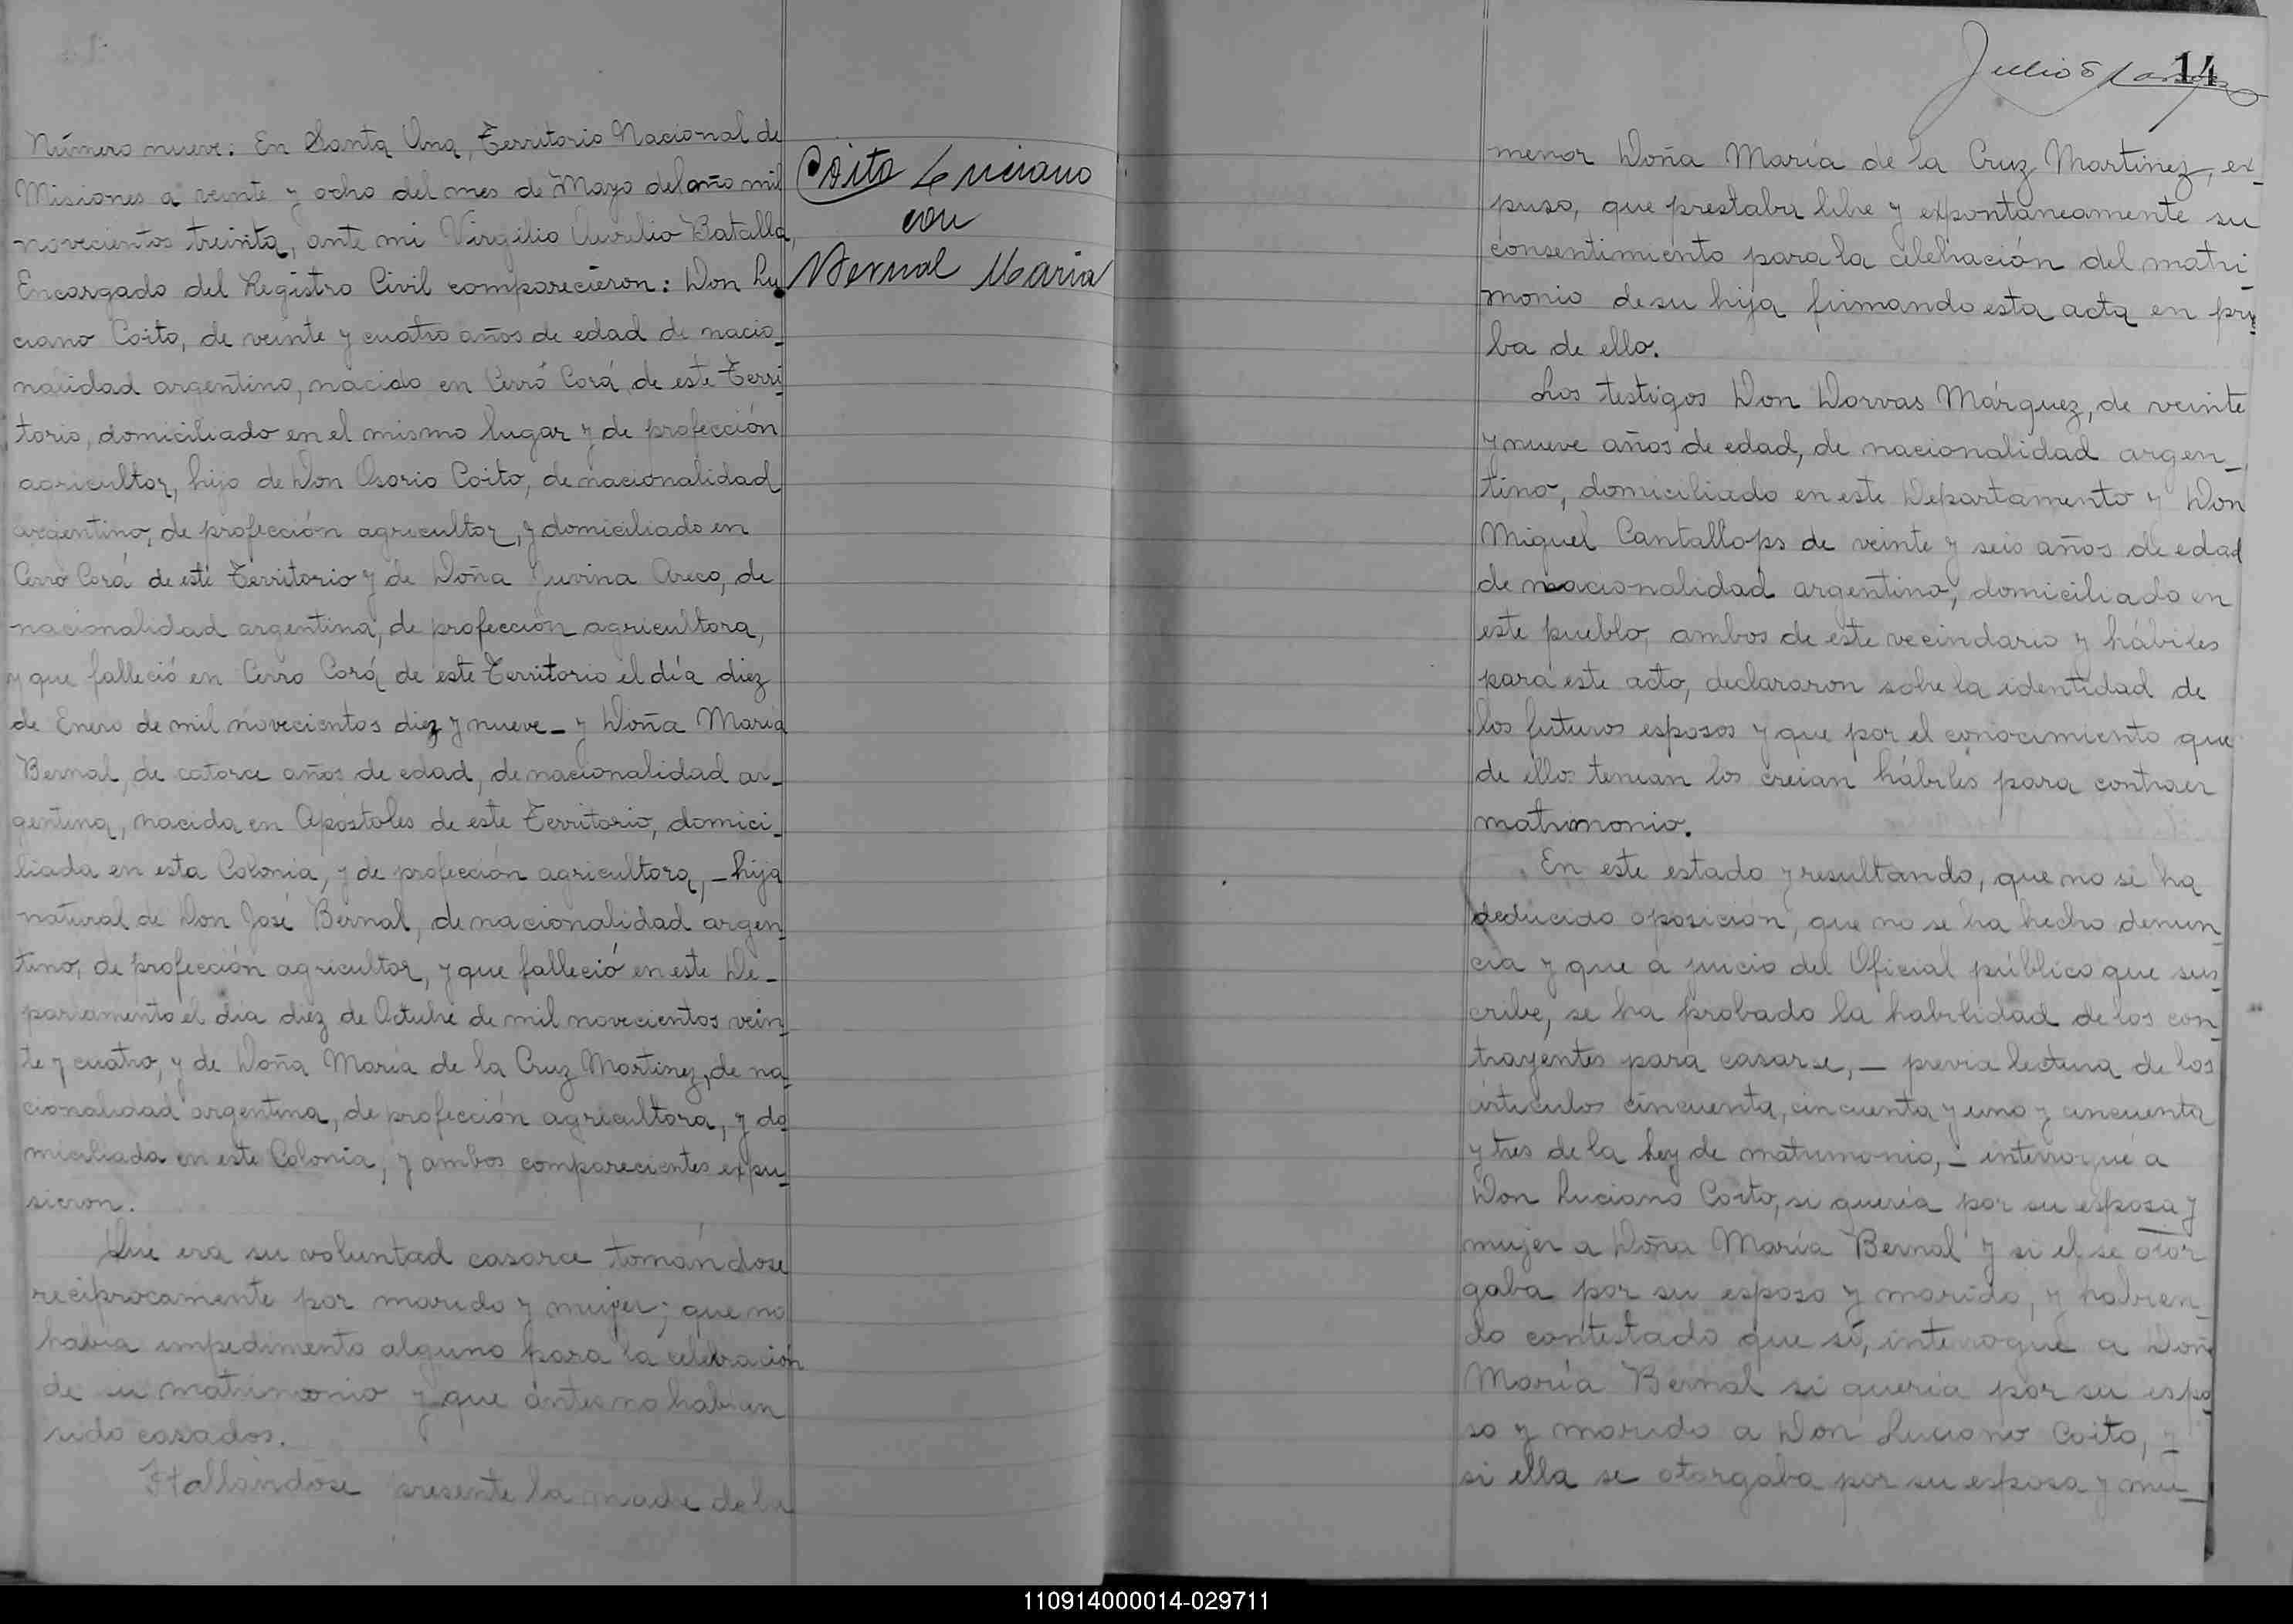 Número nueve: En Santa Ana, Territorio Nacional de
Misiones a veinte y ocho del mes de Mayo del año mil
novecientos treinta, ante mi Virgilio Aurelio Batalla,
Encargado del Registro Civil comparecieron: Don Lu
ciano Coito, de veinte y cuatro años de edad de nacio_
nalidad argentino, nacido en Cerro Corá de este Terri
torio, domiciliado en el mismo lugar y de profección
agricultor, hijo de Don Osorio Coito, de nacionalidad
argentino, de profección agricultor, y domiciliado en
Cerro Corá de este Territorio y de Doña Juvina Areco, de
nacionalidad argentina, de profección agricultora,
y que falleció en Cerro Corá de este Territorio el día diez
de Enero de mil novecientos diez y nueve_ y Doña María
Bernal, de catorce años de edad, de nacionalidad ar_
gentina, nacida en Apóstoles de este Territorio, domici_
liada en esta Colonia, y de profección agricultora, _ hija
natural de Don José Bernal, de nacionalidad argen_
tino, de profección agricultor, y que falleció en este De_
partamento el día diez de Octubre de mil novecientos vein_
te y cuatro, y de Doña María de la Cruz Martinez, de na_
cionalidad argentina, de profección agricultora, y do
miciliada en este Colonia, y ambos comparecientes expu_
sieron.
Que era su voluntad casarce tomándose
reciprocamente por marido y mujer; que no
había impedimento alguno para la celebración
de su matrimonio y que ántes no habían
sido casados.
Hallándose presente la madre de la
Coito Luciano
con
Bernal Maria
14
menor Doña María de la Cruz Martínez, ex_
puso, que prestaba libre y expontáneamente su
consentimiento para la celebración del matri_
monio de su hija firmando esta acta en prue
ba de ello.
Los testigos Don Dorvas Márquez, de veinte
y nueve años de edad, de nacionalidad argen_
tino, domiciliado en este Departamento y Don
Miguel Cantallops de veinte y seis años de edad
de nacionalidad argentino, domiciliado en
este pueblo, ambos de este vecindario y hábiles
para este acto, declararon sobre la identidad de
los futuros esposos y que por el conocimiento que
de ellos tenían los creían hábiles para contraer
matrimonio.
En este estado y resultando, que no se ha
deducido oposición, que no se ha hecho denun_
cia y que a juicio del Oficial público que sus_
cribe, se ha probado la habilidad de los con_
trayentes para casarse, _ previa lectura de los
artículos cincuenta, cincuenta y uno y cincuenta
y tres de la Ley de matrimonio, _ interrogué a
Don Luciano Coito, si quería por su esposa y
mujer a Doña María Bernal y si el se otor_
gaba por su esposo y marido, y habien_
do contestado que sí, interrogué a Doña
María Bernal si quería por su espo_
so y marido a Don Luciano Coito, y
si ella se otorgaba por su esposa y mu_
110914000014-029711